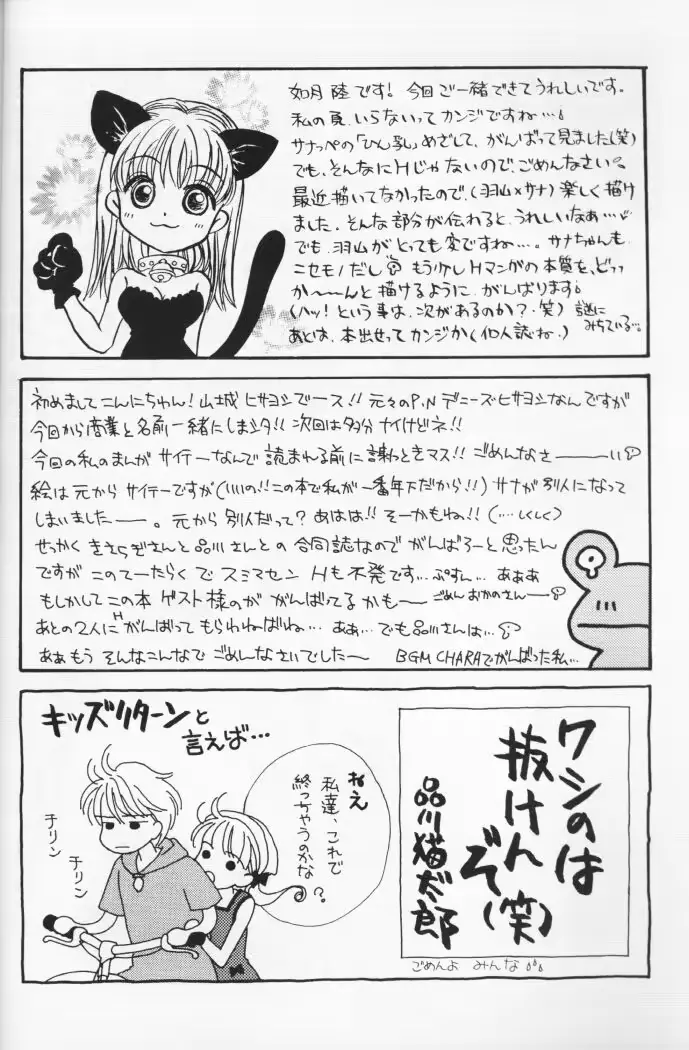 如月 陸です! 今回ご一緒できてうれしいです。
私の頁、いらないってカンジですね…
サナッペの「ひん乳」めざして、がんばって見ました(笑)
でも、そんなにHじゃないので、ごめんなさい。
最近描いてなかったので、(羽山×サナ)楽しく描け
ました。そんな部分が伝わると、うれしいなぁ…
でも、羽山がとっても変ですね…。サナちゃんも
ニセモノだし もう少しHマンガの本質を、どっ
か〜〜んと描けるように、がんばります
(ハッ! という事は、次があるのか?・笑) 謎に
みちている…
あとは、本出せってカンジか(個人誌ね・)
初めましてこんにちゎん! 山城 ヒサヨシでース!! 元々のP.N デニーズヒサヨシなんですが
今回から商業と名前一緒にしまシタ!! 次回は多分ナイけどネ!!
今回の私のまんが サイテーなんで 読まれる前に謝っときマス!! ごめんなさーーーい
絵は元から サイテーですが(いいの!! この本で私が一番年下だから!!) サナが別人になって
しまいましたーー。元から別人だって? あはは!! そーかもね!! (…しくしく)
せっかく きさらぎさんと品川さんとの 合同誌なので がんばろーと思ったん
ですが このてーたらくで スミマセン Hも不発です…ぷすん… あぁぁ
もしかして この本 ゲスト様のが がんばってるかも〜 ごめん おかのさんー
あとの2人に H がんばって もらわねばね… ああ… でも品川さんは…
ああもう そんなこんなで ごめんなさいでした〜 BGM CHARAでがんばった私…
キッズリターンと
言えば…
チリン
チリン
ねえ
私達、これで
終っちゃうのかな
?
ワシのは
抜けん
ぞ(笑)
品川猫太郎
ごめんよ みんな